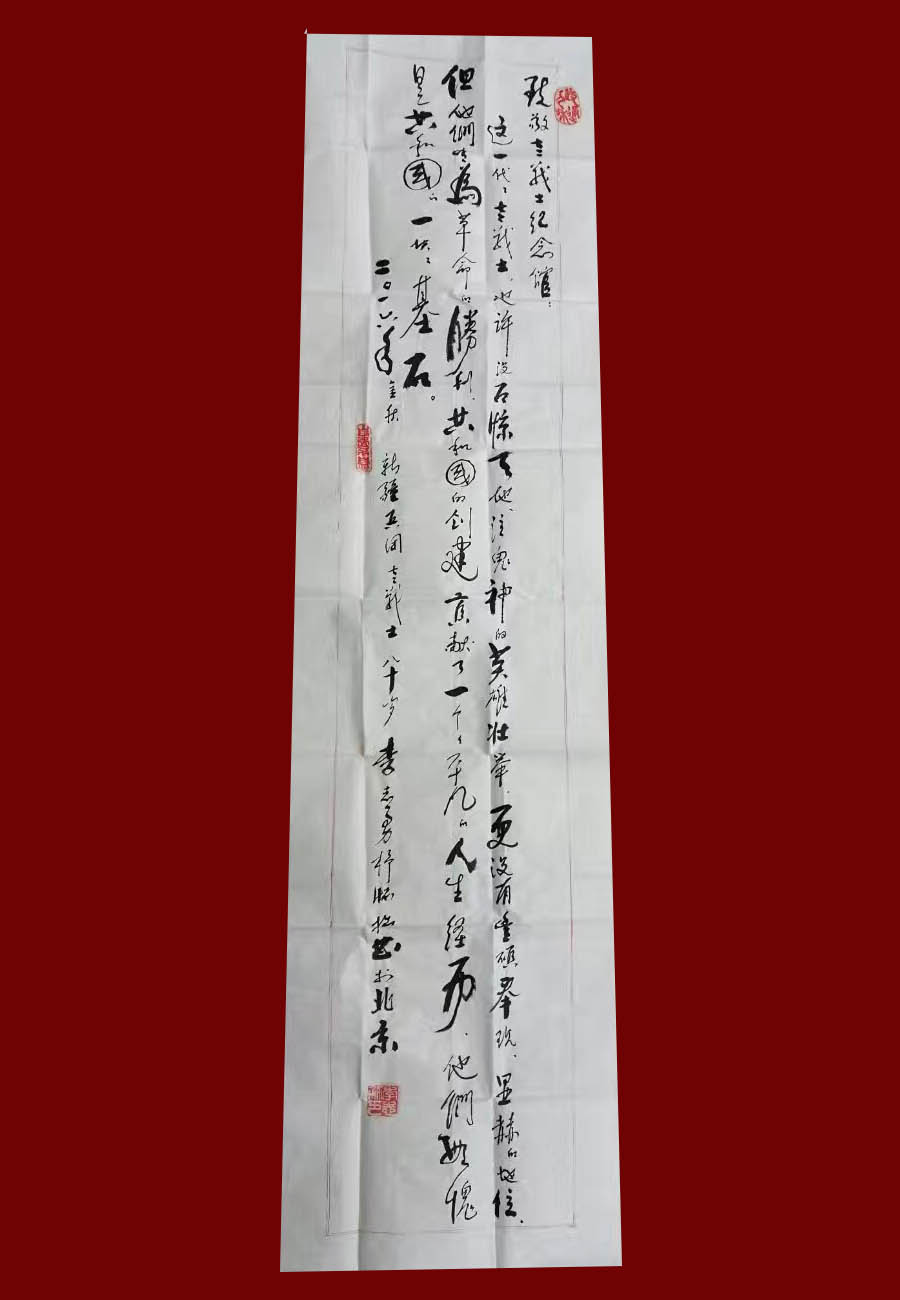 致敬老战士纪念館：
这一代代老战士，也许没有惊天地、泣鬼神的英雄壮举，更没有丰碩犖、显赫的地位，
但他們為革命的勝利、共和國的创建贡献了一个个平凡的人生经历、他們無愧
是共和國的一块块基石。
二〇一六年金秋 新疆兵团老战士 八十岁 李志勇抒怀拙书於北京